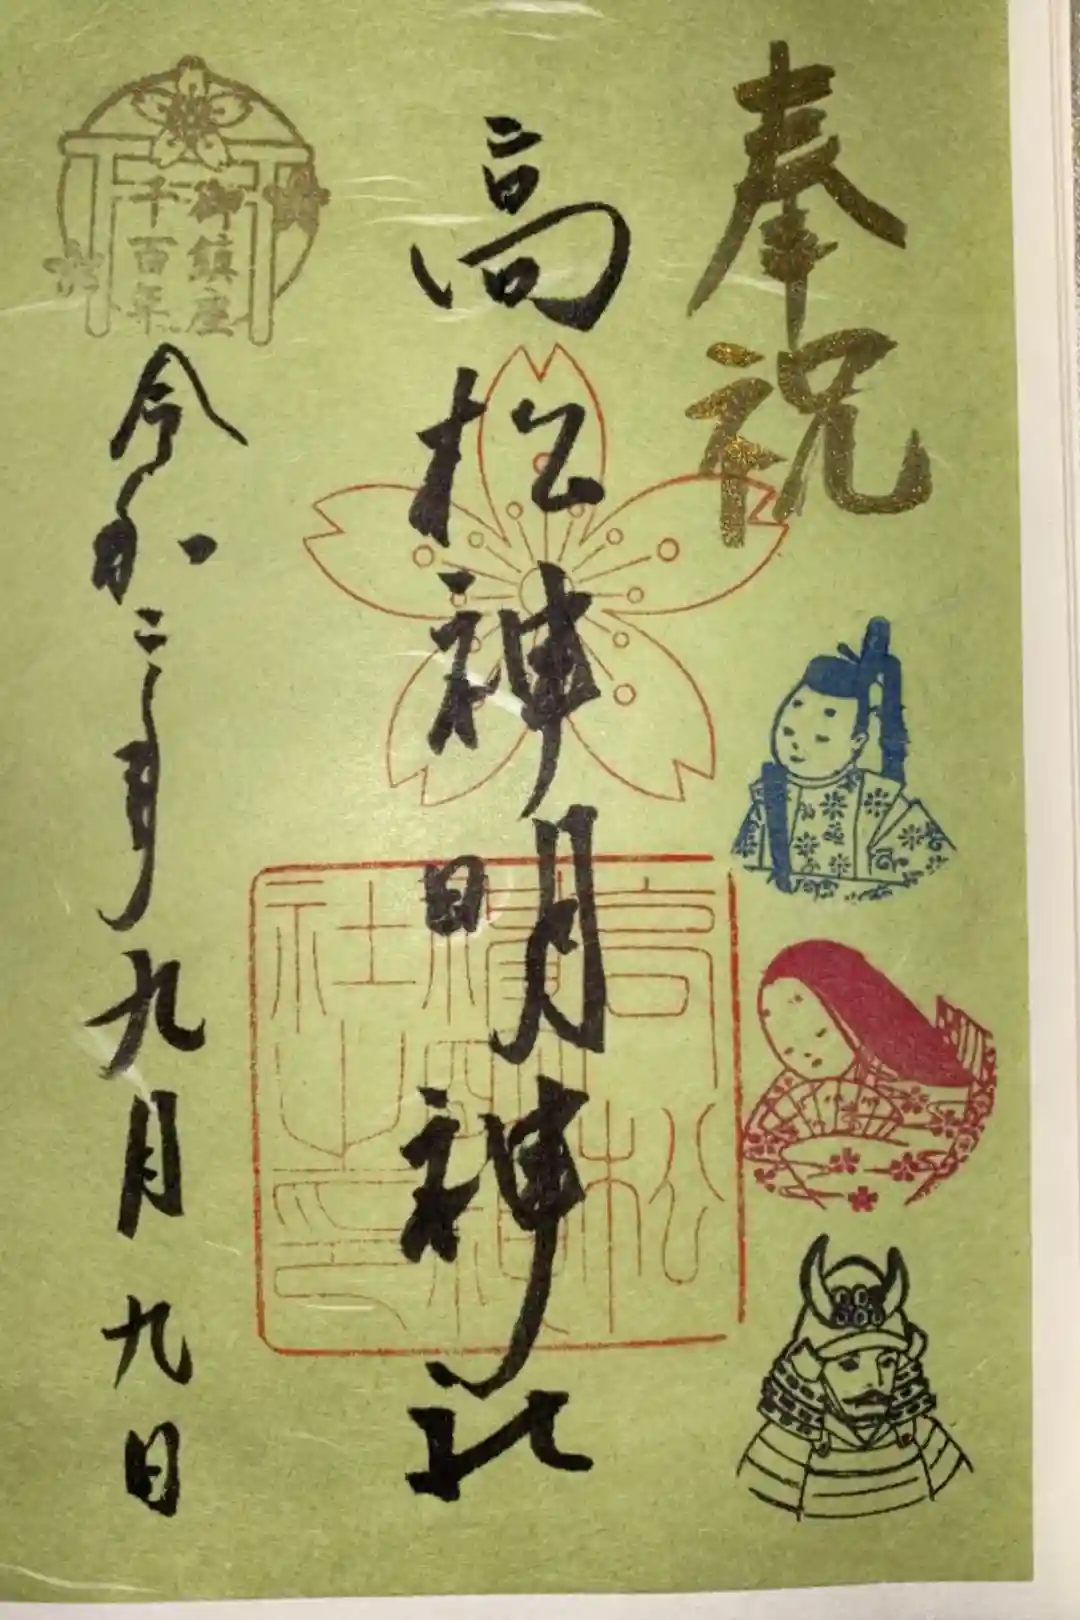 奉祝
高松神明神社
御鎮座
千百年
令和二年九月九日
高松
社之印